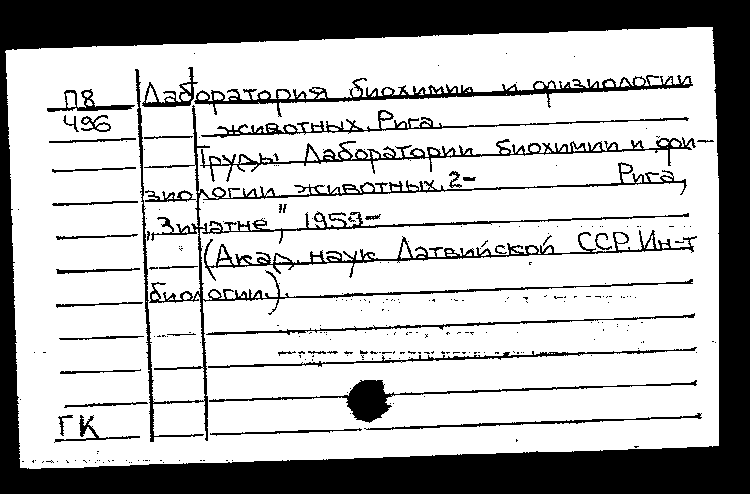 П8 Лаборатория биохимии и физиологии
496 животных. Рига.
Труды Лаборатории биохимии и фи-
зиологии животных. 2- Рига,
„Зинатне", 1959-
(Акад. наук Латвийской ССР. Ин-т
биологии.).
ГК